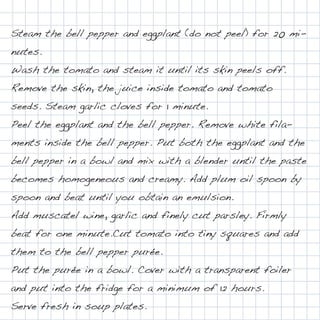 Steam the bell pepper and eggplant (do not peel) for 20 mi-
nutes.
Wash the tomato and steam it until its skin peels off.
Remove the skin, the juice inside tomato and tomato
seeds. Steam garlic cloves for 1 minute.
Peel the eggplant and the bell pepper. Remove white fila-
ments inside the bell pepper. Put both the eggplant and the
bell pepper in a bowl and mix with a blender until the paste
becomes homogeneous and creamy. Add plum oil spoon by
spoon and beat until you obtain an emulsion.
Add muscatel wine, garlic and finely cut parsley. Firmly
beat for one minute.Cut tomato into tiny squares and add
them to the bell pepper purée.
Put the purée in a bowl. Cover with a transparent foiler
and put into the fridge for a minimum of 12 hours.
Serve fresh in soup plates.